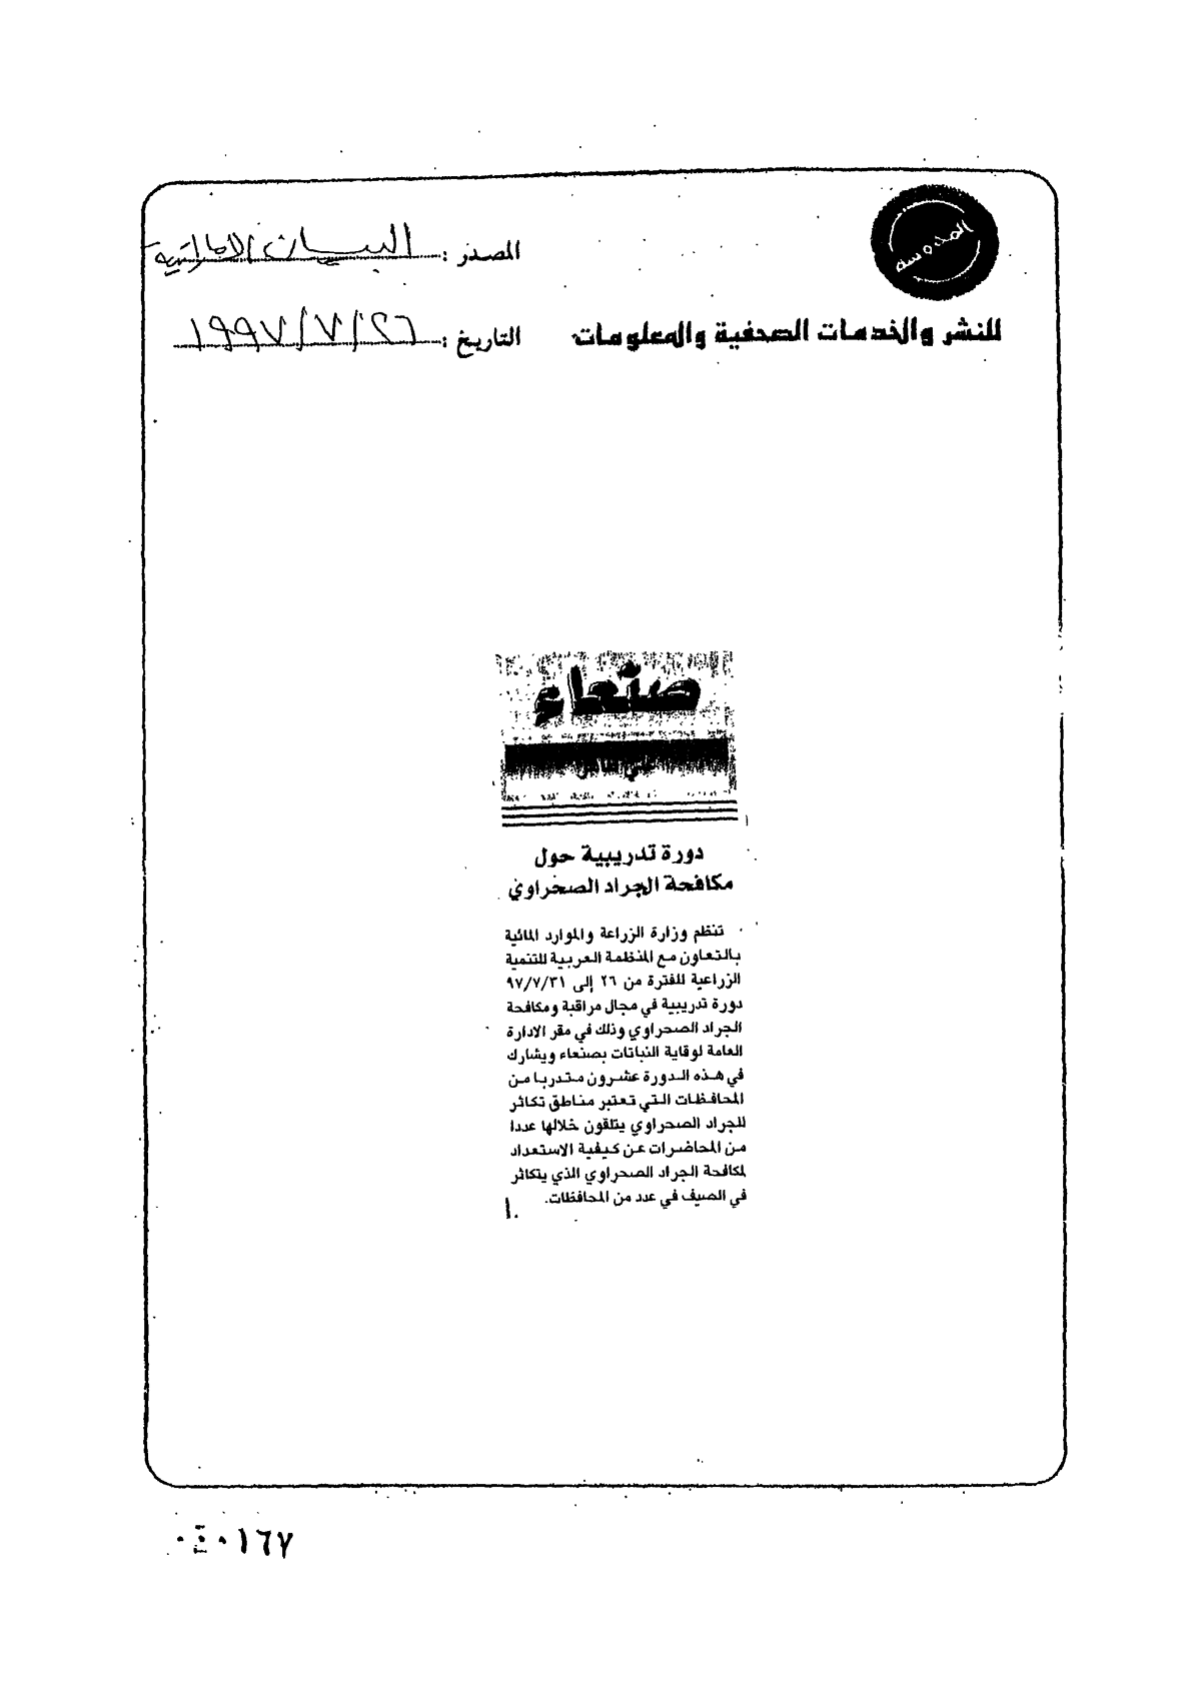 المصدر : البيان الاماراتية
للنشر والخدمات الصحفية والمعلومات
التاريخ : ٢٦/٧/١٩٩٧
صنعاء
دورة تدريبية حول
مكافحة الجراد الصحراوي
تنظم وزارة الزراعة والموارد المائية
بالتعاون مع المنظمة العربية للتنمية
الزراعية للفترة من ٢٦ إلى ٩٧/٧/٣١
دورة تدريبية في مجال مراقبة ومكافحة
الجراد الصحراوي وذلك في مقر الادارة
العامة لوقاية النباتات بصنعاء ويشارك
في هذه الدورة عشرون متدربا من
المحافظات التي تعتبر مناطق تكاثر
للجراد الصحراوي يتلقون خلالها عددا
من المحاضرات عن كيفية الاستعداد
لمكافحة الجراد الصحراوي الذي يتكاثر
في الصيف في عدد من المحافظات.